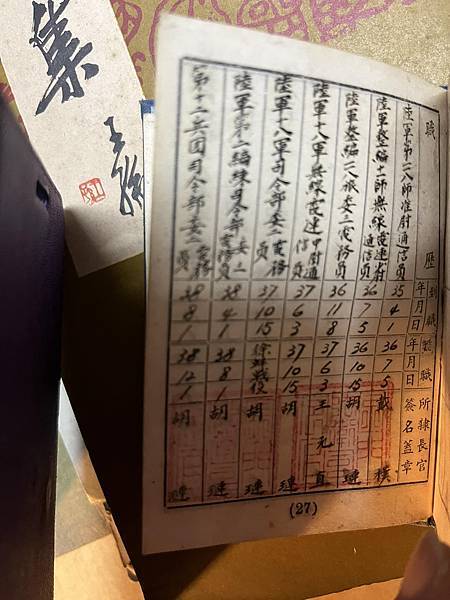 集
職歷
到職年月日
離職年月日
所隸長官簽名蓋章
陸軍第一八師准尉通信員 35 4 1 36 7 5 戴樸
陸軍整編十一師無線電連少尉通信員 36 7 5 36 10 7 胡璉
陸軍整編一八旅委二電務員 36 11 8 37 6 3 王元直
陸軍十八軍無線電連中尉通信員 37 6 3 37 10 15 胡璉
陸軍十八軍司令部委二電務員 37 10 15 徐蚌戰役 胡璉
陸軍第二編練司令部委二電務員 38 4 1 38 8 1 胡璉
第十二兵團司令部委二電務員 38 8 1 38 12 1 胡璉
(27)